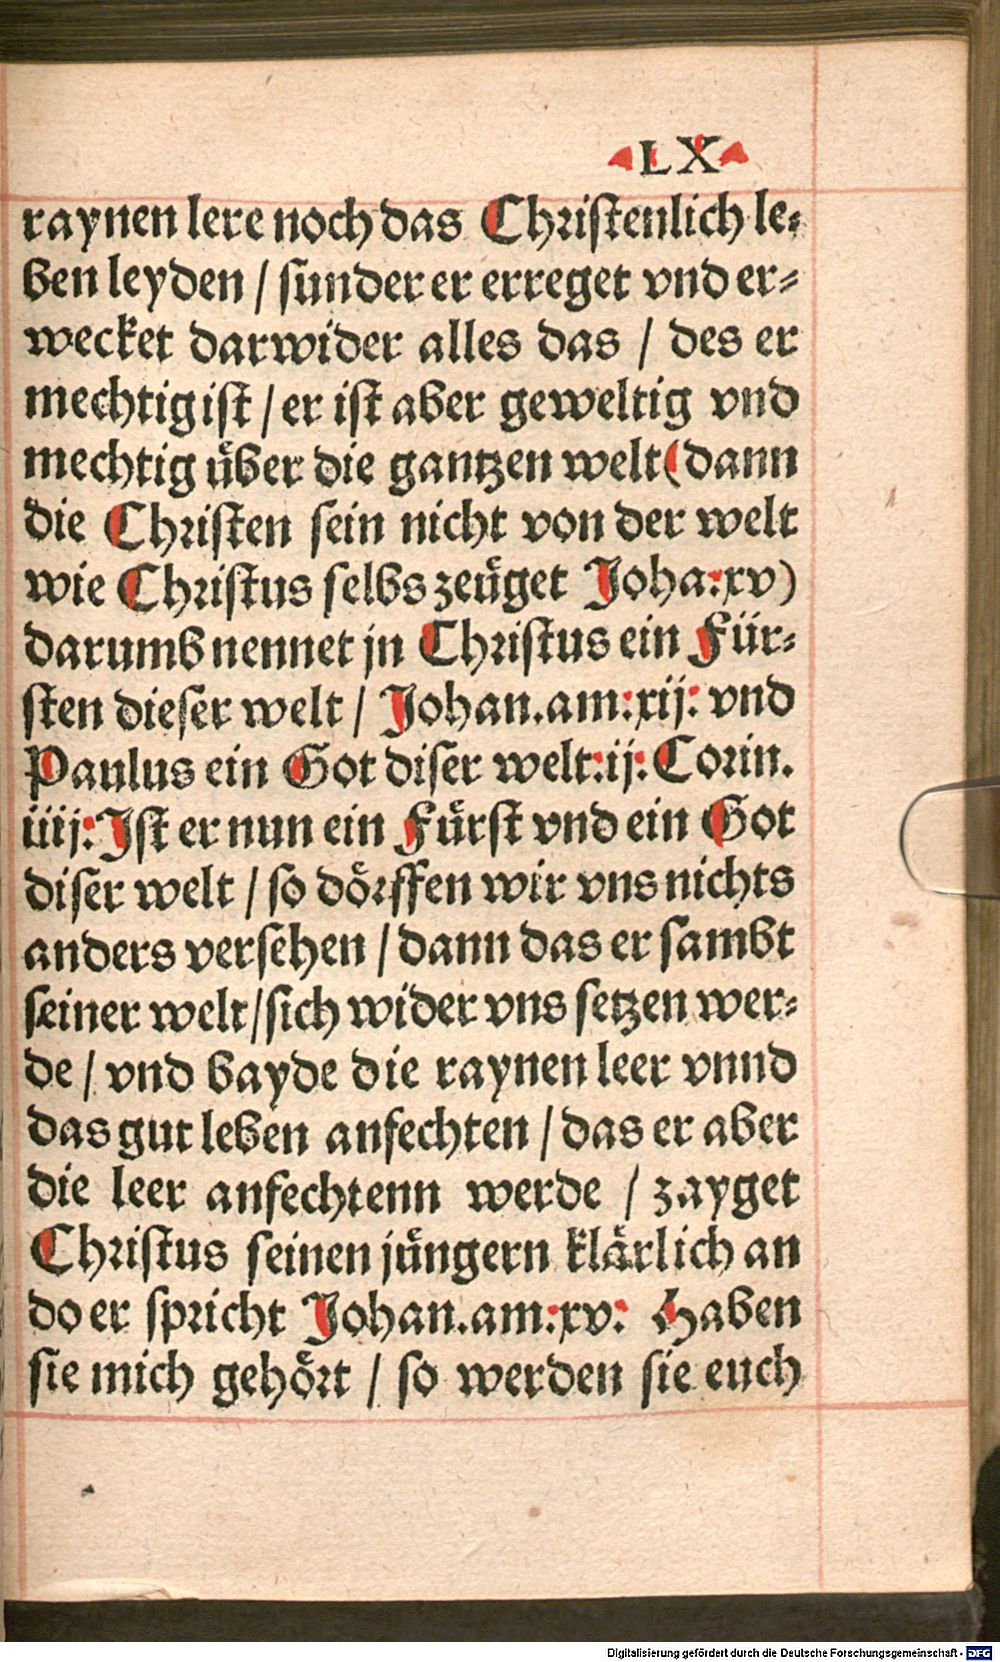 LX
raynen lere noch das Christenlich le-
ben leyden / sunder er erreget vnd er-
wecket darwider alles das / des er
mechtig ist / er ist aber geweltig vnd
mechtig über die gantzen welt (dann
die Christen sein nicht von der welt
wie Christus selbs zeüget Joha: xv)
darumb nennet jn Christus ein Für-
sten dieser welt / Johan. am: xij: vnd
Paulus ein Got diser welt: ij: Corin.
iiij: Ist er nun ein Fürst vnd ein Got
diser welt / so dörffen wir vns nichts
anders versehen / dann das er sambt
seiner welt / sich wider vns setzen wer-
de / vnd bayde die raynen leer vnnd
das gut leben anfechten / das er aber
die leer anfechtenn werde / zayget
Christus seinen jüngern klärlich an
do er spricht Johan. am: xv: Haben
sie mich gehört / so werden sie euch
Digitalisierung gefördert durch die Deutsche Forschungsgemeinschaft - DFG